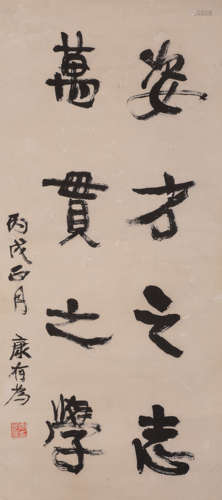 姿才之志
萬貫之學
丙戌正月 康有為